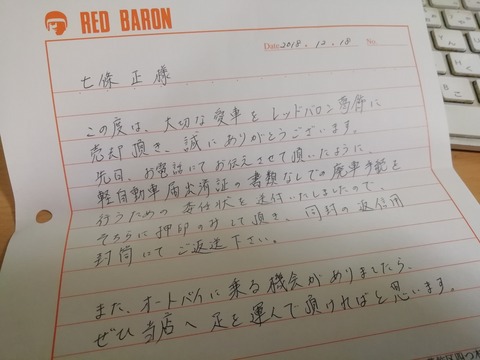 RED BARON
Date 2018.12.18 No.
七條 正 様
この度は、大切な愛車をレッドバロン夢館に
売却頂き、誠にありがとうございます。
先日、お電話にてお伝えさせて頂いたように、
軽自動車届出済証の書類なしでの廃車手続を
行うための委任状を送付いたしましたので、
そちらに押印のみして頂き、同封の返信用
封筒にてご返送下さい。
また、オートバイに乗る機会がありましたら、
ぜひ当店へ足を運んで頂ければと思います。